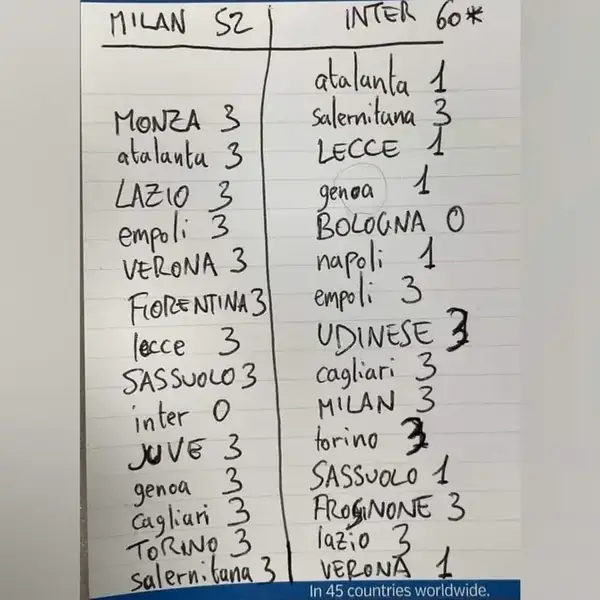 MILAN 52
INTER 60*
MONZA 3
atalanta 3
LAZIO 3
empoli 3
VERONA 3
FIORENTINA 3
lecce 3
SASSUOLO 3
inter 0
JUVE 3
genoa 3
cagliari 3
TORINO 3
salernitana 3
atalanta 1
salernitana 3
LECCE 1
genoa 1
BOLOGNA 0
napoli 1
empoli 3
UDINESE 3
cagliari 3
MILAN 3
torino 3
SASSUOLO 1
FROSINONE 3
lazio 3
VERONA 1
In 45 countries worldwide.